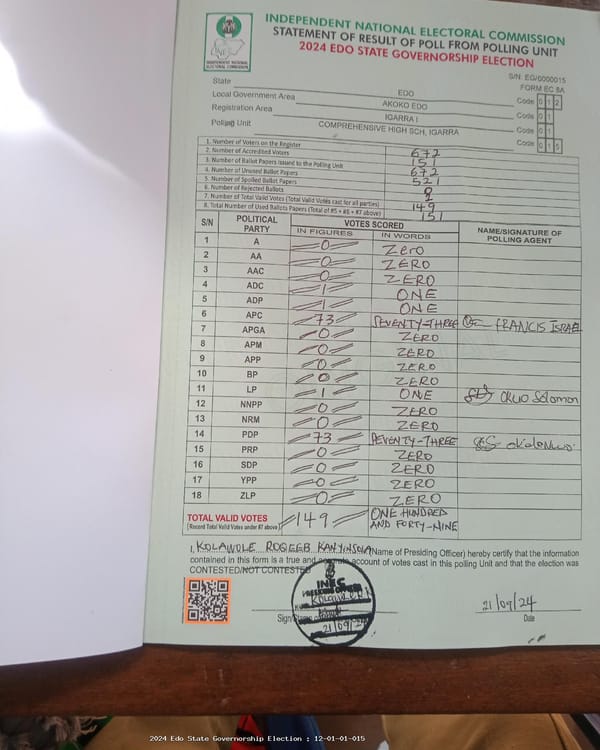 INDEPENDENT NATIONAL ELECTORAL COMMISSION
STATEMENT OF RESULT OF POLL FROM POLLING UNIT
2024 EDO STATE GOVERNORSHIP ELECTION
INDEPENDENT NATIONAL ELECTORAL COMMISSION
S/N: EG/0000015
FORM EC 8A
State EDO
Local Government Area AKOKO EDO Code 0 1 2
Registration Area IGARRA I Code 0 1
Polling Unit COMPREHENSIVE HIGH SCH, IGARRA Code 0 1
Code 0 1 5
1. Number of Voters on the Register 672
2. Number of Accredited Voters 151
3. Number of Ballot Papers Issued to the Polling Unit 672
4. Number of Unused Ballot Papers 521
5. Number of Spoiled Ballot Papers
6. Number of Rejected Ballots
7. Number of Total Valid Votes (Total Valid Votes cast for all parties) 149
8. Total Number of Used Ballots Papers (Total of #5 + #6 + #7 above) 151
S/N POLITICAL PARTY VOTES SCORED NAME/SIGNATURE OF POLLING AGENT
IN FIGURES IN WORDS
1 A 0 Zero
2 AA 0 ZERO
3 AAC 0 ZERO
4 ADC 1 ONE
5 ADP 1 ONE
6 APC 73 SEVENTY-THREE FRANCIS ISRAEL
7 APGA 0 ZERO
8 APM 0 ZERO
9 APP 0 ZERO
10 BP 0 ZERO
11 LP 1 ONE Solomon
12 NNPP 0 ZERO
13 NRM 0 ZERO
14 PDP 73 SEVENTY-THREE
15 PRP 0 ZERO
16 SDP 0 ZERO
17 YPP 0 ZERO
18 ZLP 0 ZERO
TOTAL VALID VOTES 149 ONE HUNDRED
[Record Total Valid Votes under #7 above] AND FORTY-NINE
I, KOLAWOLE ROQEEB KANYINSOLA (Name of Presiding Officer) hereby certify that the information
contained in this form is a true and account of votes cast in this polling Unit and that the election was
CONTESTED/NOT CONTESTED
INEC
PRESIDING OFFICER
21/09/24
21/09/24
Date
2024 Edo State Governorship Election : 12-01-01-015